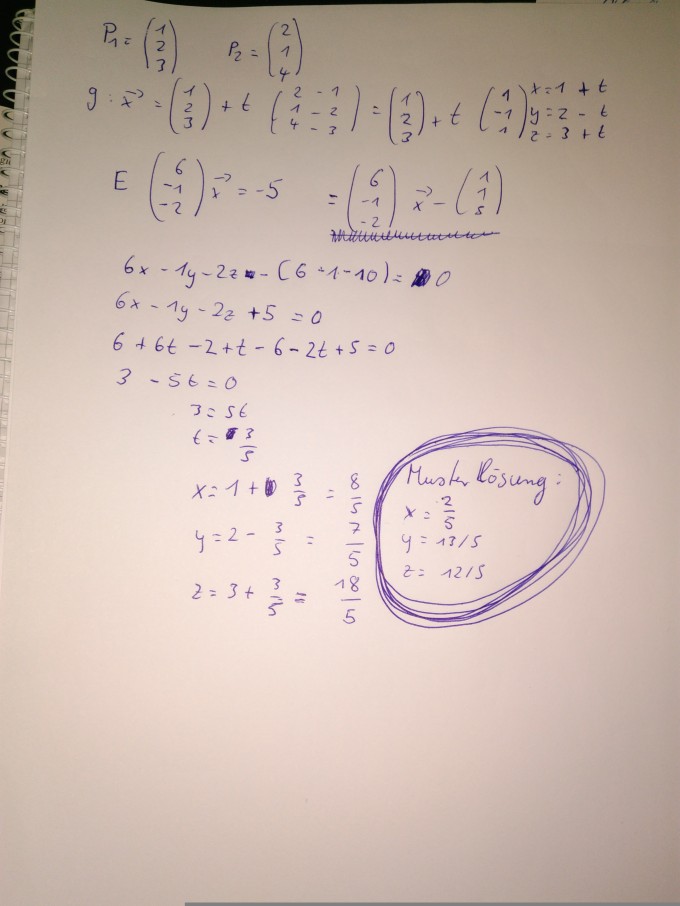 P₁ = (1 2 3) P₂ = (2 1 4)
g: x⃗ = (1 2 3) + t (2-1 1-2 4-3) = (1 2 3) + t (1 -1 1) x=1+t
y=2-t
z=3+t
E (6 -1 -2) x⃗ = -5 = (6 -1 -2) x⃗ - (1 1 5)
6x - 1y - 2z - (6 -1 -10) = 0
6x - 1y - 2z + 5 = 0
6 + 6t - 2 + t - 6 - 2t + 5 = 0
3 - 5t = 0
3 = 5t
t = 3/5
x = 1 + 3/5 = 8/5
y = 2 - 3/5 = 7/5
z = 3 + 3/5 = 18/5
Muster Lösung:
x = 2/5
y = 13/5
z = 12/5